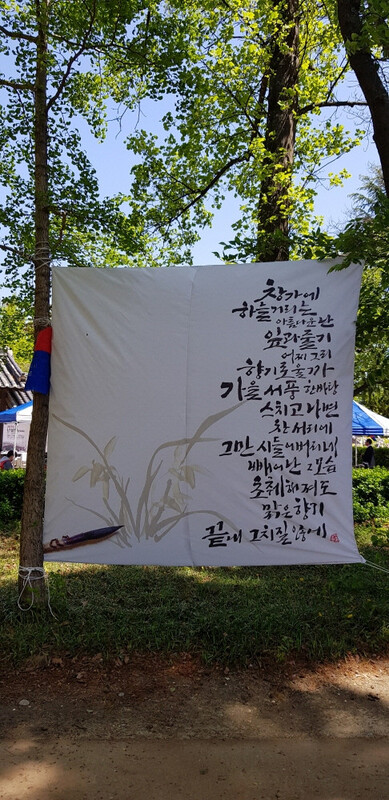 창가에
하늘거리는
아름다운 난
잎과 줄기
어찌 그리
향기로울까
가을 서풍 한바탕
스치고 나면
찬 서리에
그만 시들어버리네
빼어난 그 모습
초췌해져도
맑은 향기
끝내 그치질 않네